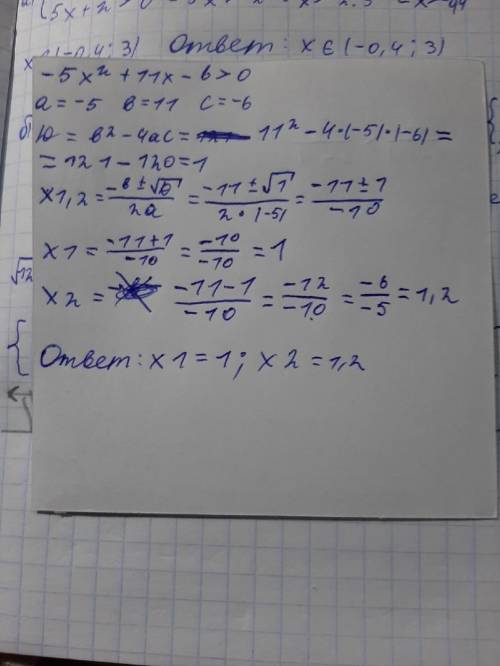 x ∈ (-0,4; 3) Ответ: x ∈ (-0,4; 3)
-5x² + 11x - 6 > 0
a = -5 в = 11 c = -6
б)
D = в² - 4ac = 11² - 4·(-5)·(-6) =
= 121 - 120 = 1
x1,2 = (-в ± √D)/2a = (-11 ± √1)/(2·(-5)) = (-11 ± 1)/-10
x1 = (-11+1)/-10 = -10/-10 = 1
x2 = (-11-1)/-10 = -12/-10 = -6/-5 = 1,2
√12
Ответ: x1 = 1; x2 = 1,2